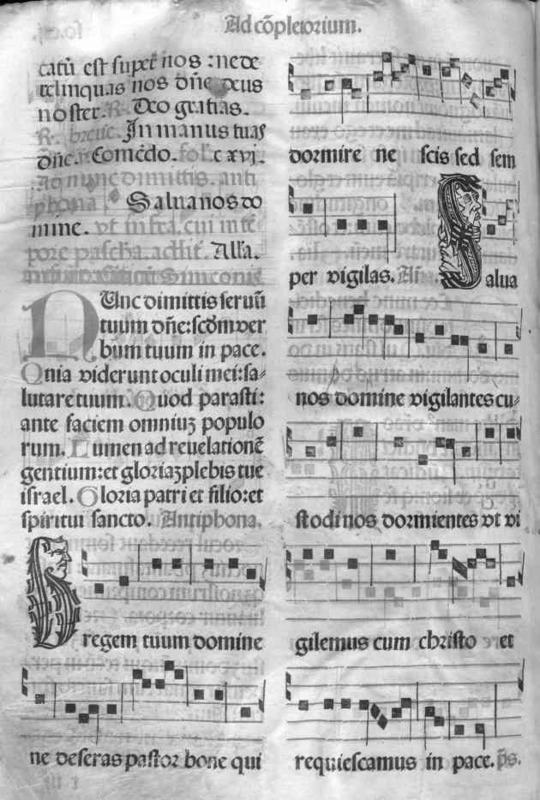 Ad cōpletorium.
catū est super nos : nede
relinquas nos dñe deus
noster. R. Deo gratias.
R. breue. In manus tuas
dñe. Comēdo. fol. c xvj.
Ad nunc dimittis. anti
phona. Salua nos do
mine. vt infra. cui in tē
pore pascha. addit. Alľa.
Canticū Simeonis
NUnc dimittis seruū
tuum dñe: scđm ver
bum tuum in pace.
Quia viderunt oculi mei: sa⸗
lutare tuum. Quod parasti:
ante faciem omniuȝ populo
rum. Lumen ad reuelationē
gentium: et gloriaȝ plebis tue
israel. Gloria patri et filio: et
spiritui sancto. Antiphona.
regem tuum domine
ne deseras pastor bone qui
dormire ne scis sed sem
per vigilas. Añ. Salua
nos domine vigilantes cu⸗
stodi nos dormientes vt vi
gilemus cum christo et
requiescamus in pace. p̄s.